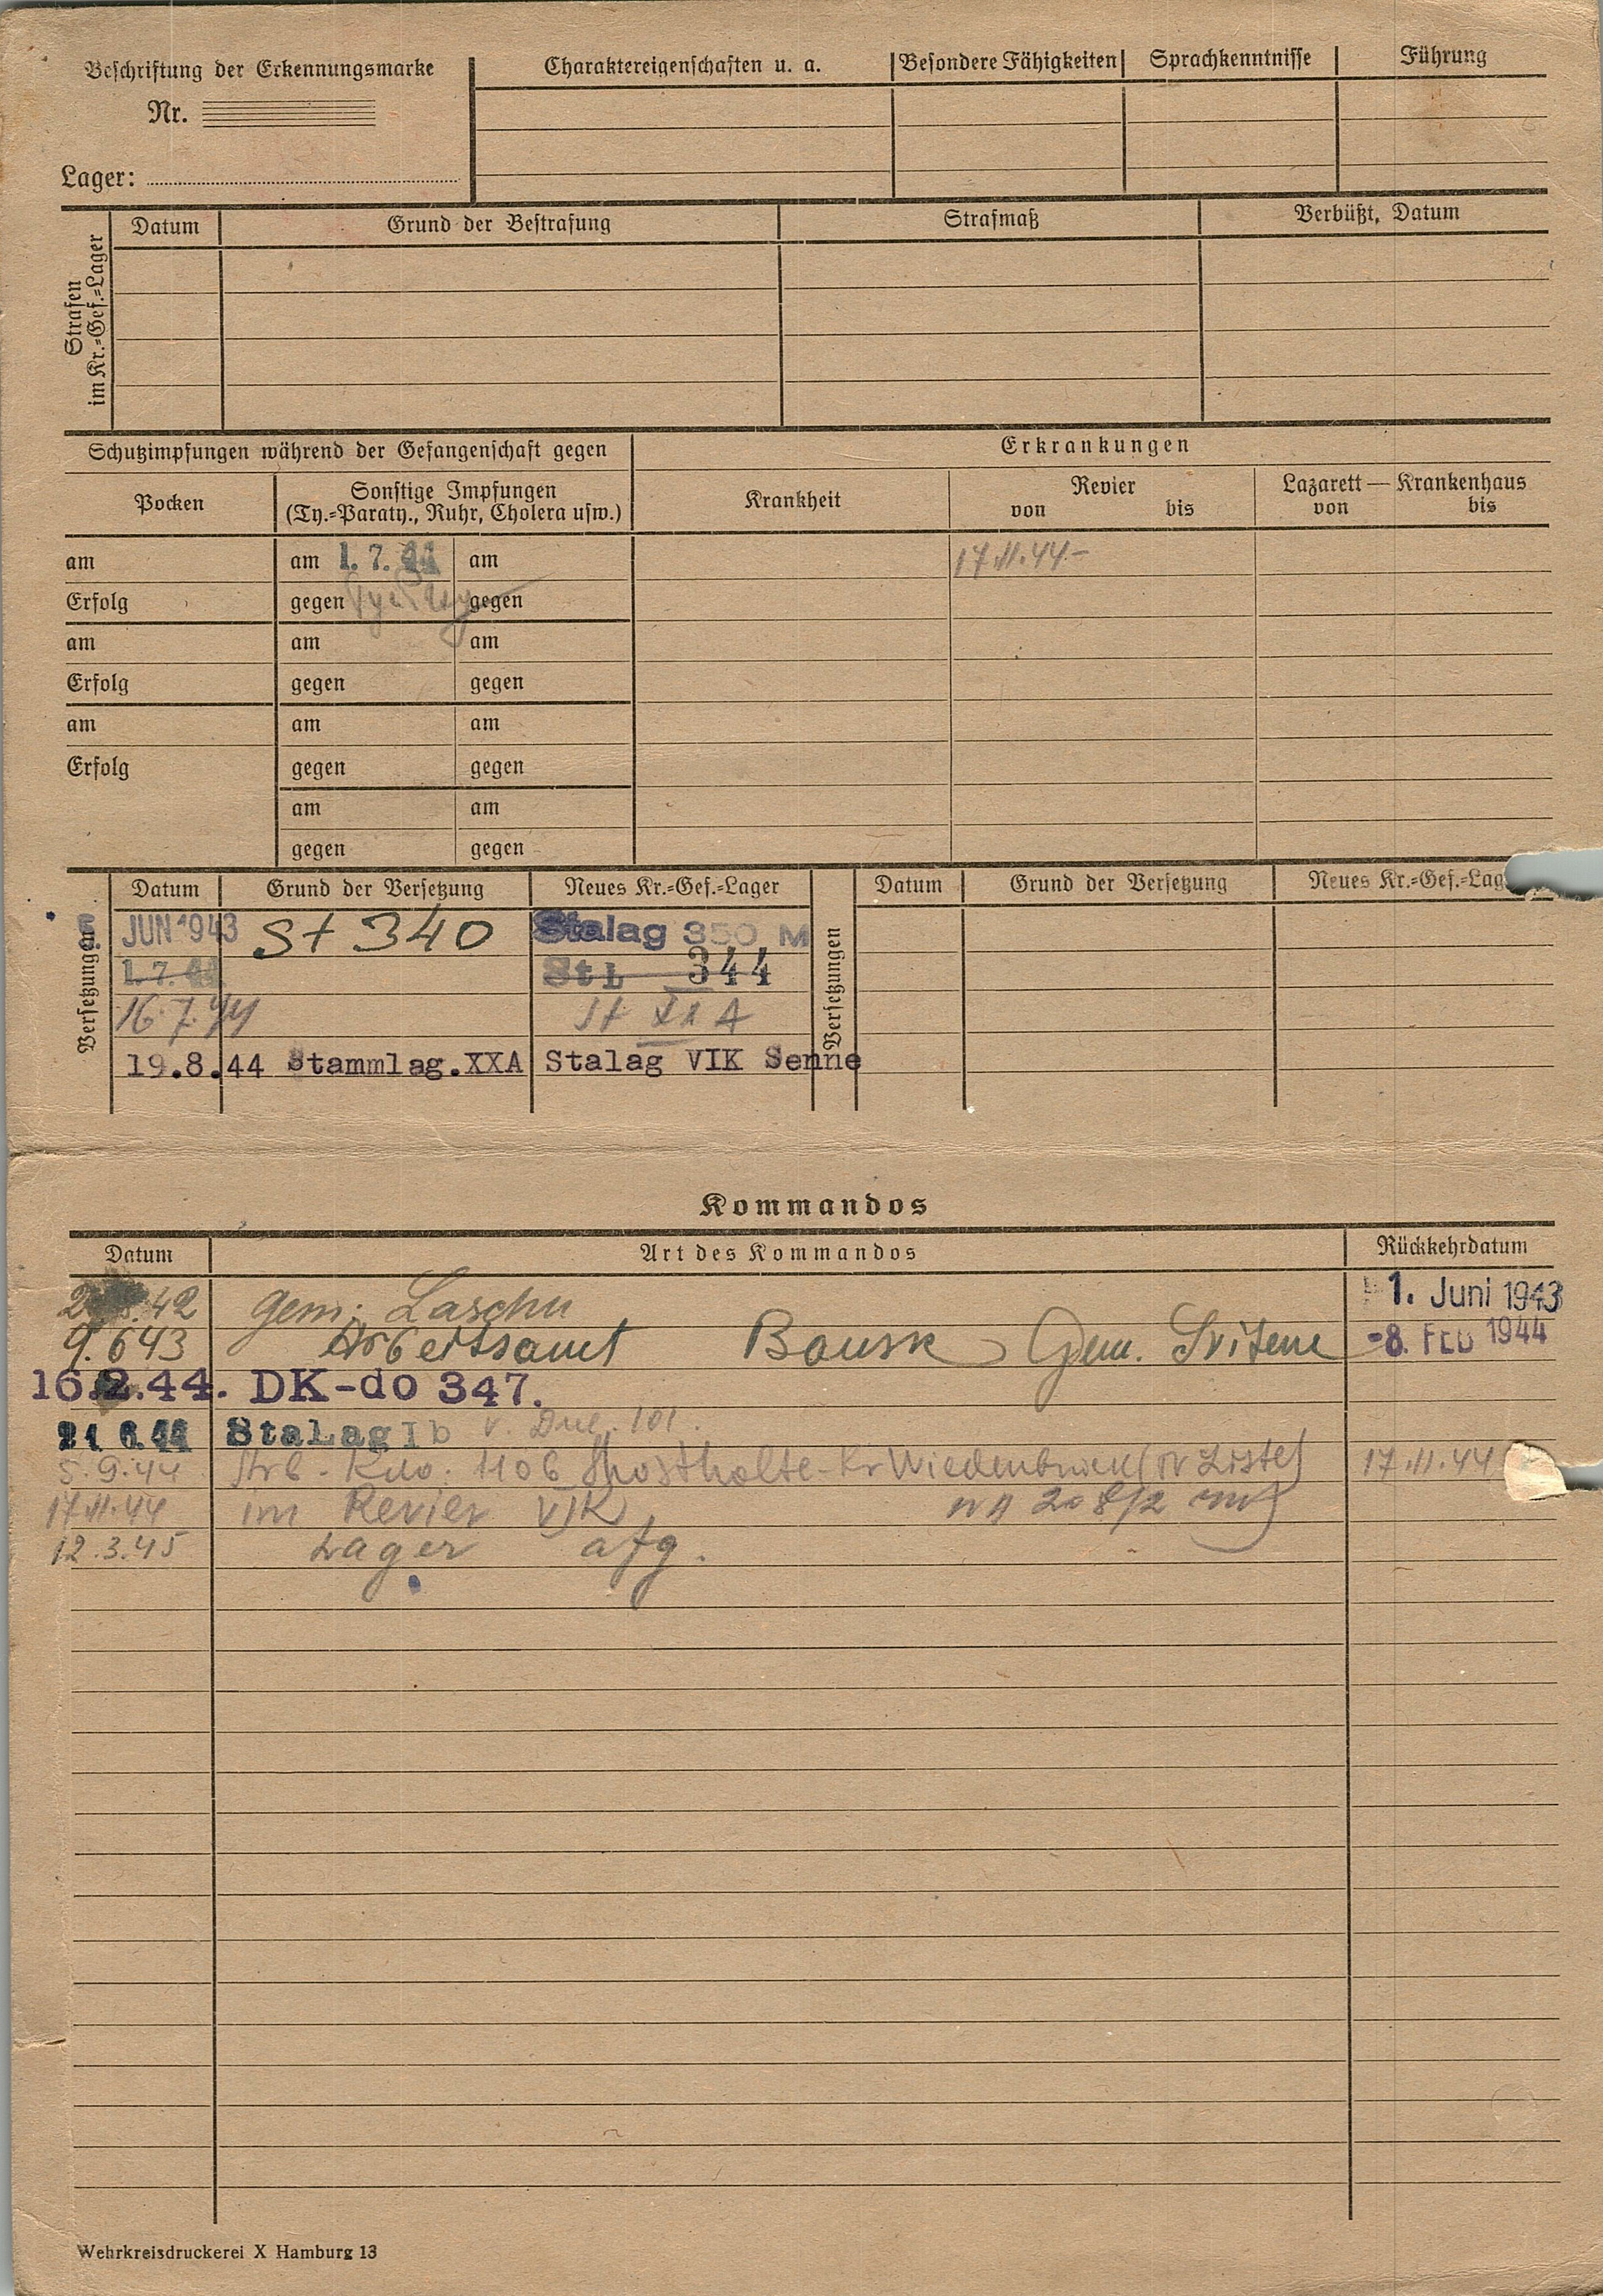 Beschriftung der Erkennungsmarke
Nr.
Lager:
Charaktereigenschaften u. a. Besondere Fähigkeiten Sprachkenntnisse Führung
Strafen im Kr.=Gef.=Lager
Datum Grund der Bestrafung Strafmaß Verbüßt, Datum
Schutzimpfungen während der Gefangenschaft gegen Erkrankungen
Pocken Sonstige Impfungen (Ty.=Paraty., Ruhr, Cholera usw.) Krankheit Revier von bis Lazarett — Krankenhaus von bis
am am 1. 7. 44 am 17.11.44-
Erfolg gegen gegen
am am am
Erfolg gegen gegen
am am am
Erfolg gegen gegen
am am
gegen gegen
Versetzungen Datum Grund der Versetzung Neues Kr.=Gef.=Lager Versetzungen Datum Grund der Versetzung Neues Kr.=Gef.=Lag
JUN 1943 St 340 Stalag 350 M
1. 7. 44 Stl 344
16.7.44 St XX A
19.8.44 Stammlag.XXA Stalag VIK Senne
Kommandos
Datum Art des Kommandos Rückkehrdatum
42 Gem. Laschu 1. Juni 1943
9.6 43 Arbeitsamt Bausk Gem. Svitene -8. FEB 1944
16.2.44. DK-do 347.
21 6.44 StaLag Ib v. Dul. 101.
5.9.44 Arb - Kdo. 1106 Kr Wiedenbrück (Liste) 17.11.44
17.11.44 im Revier VIK
12.3.45 Lager afg.
Wehrkreisdruckerei X Hamburg 13